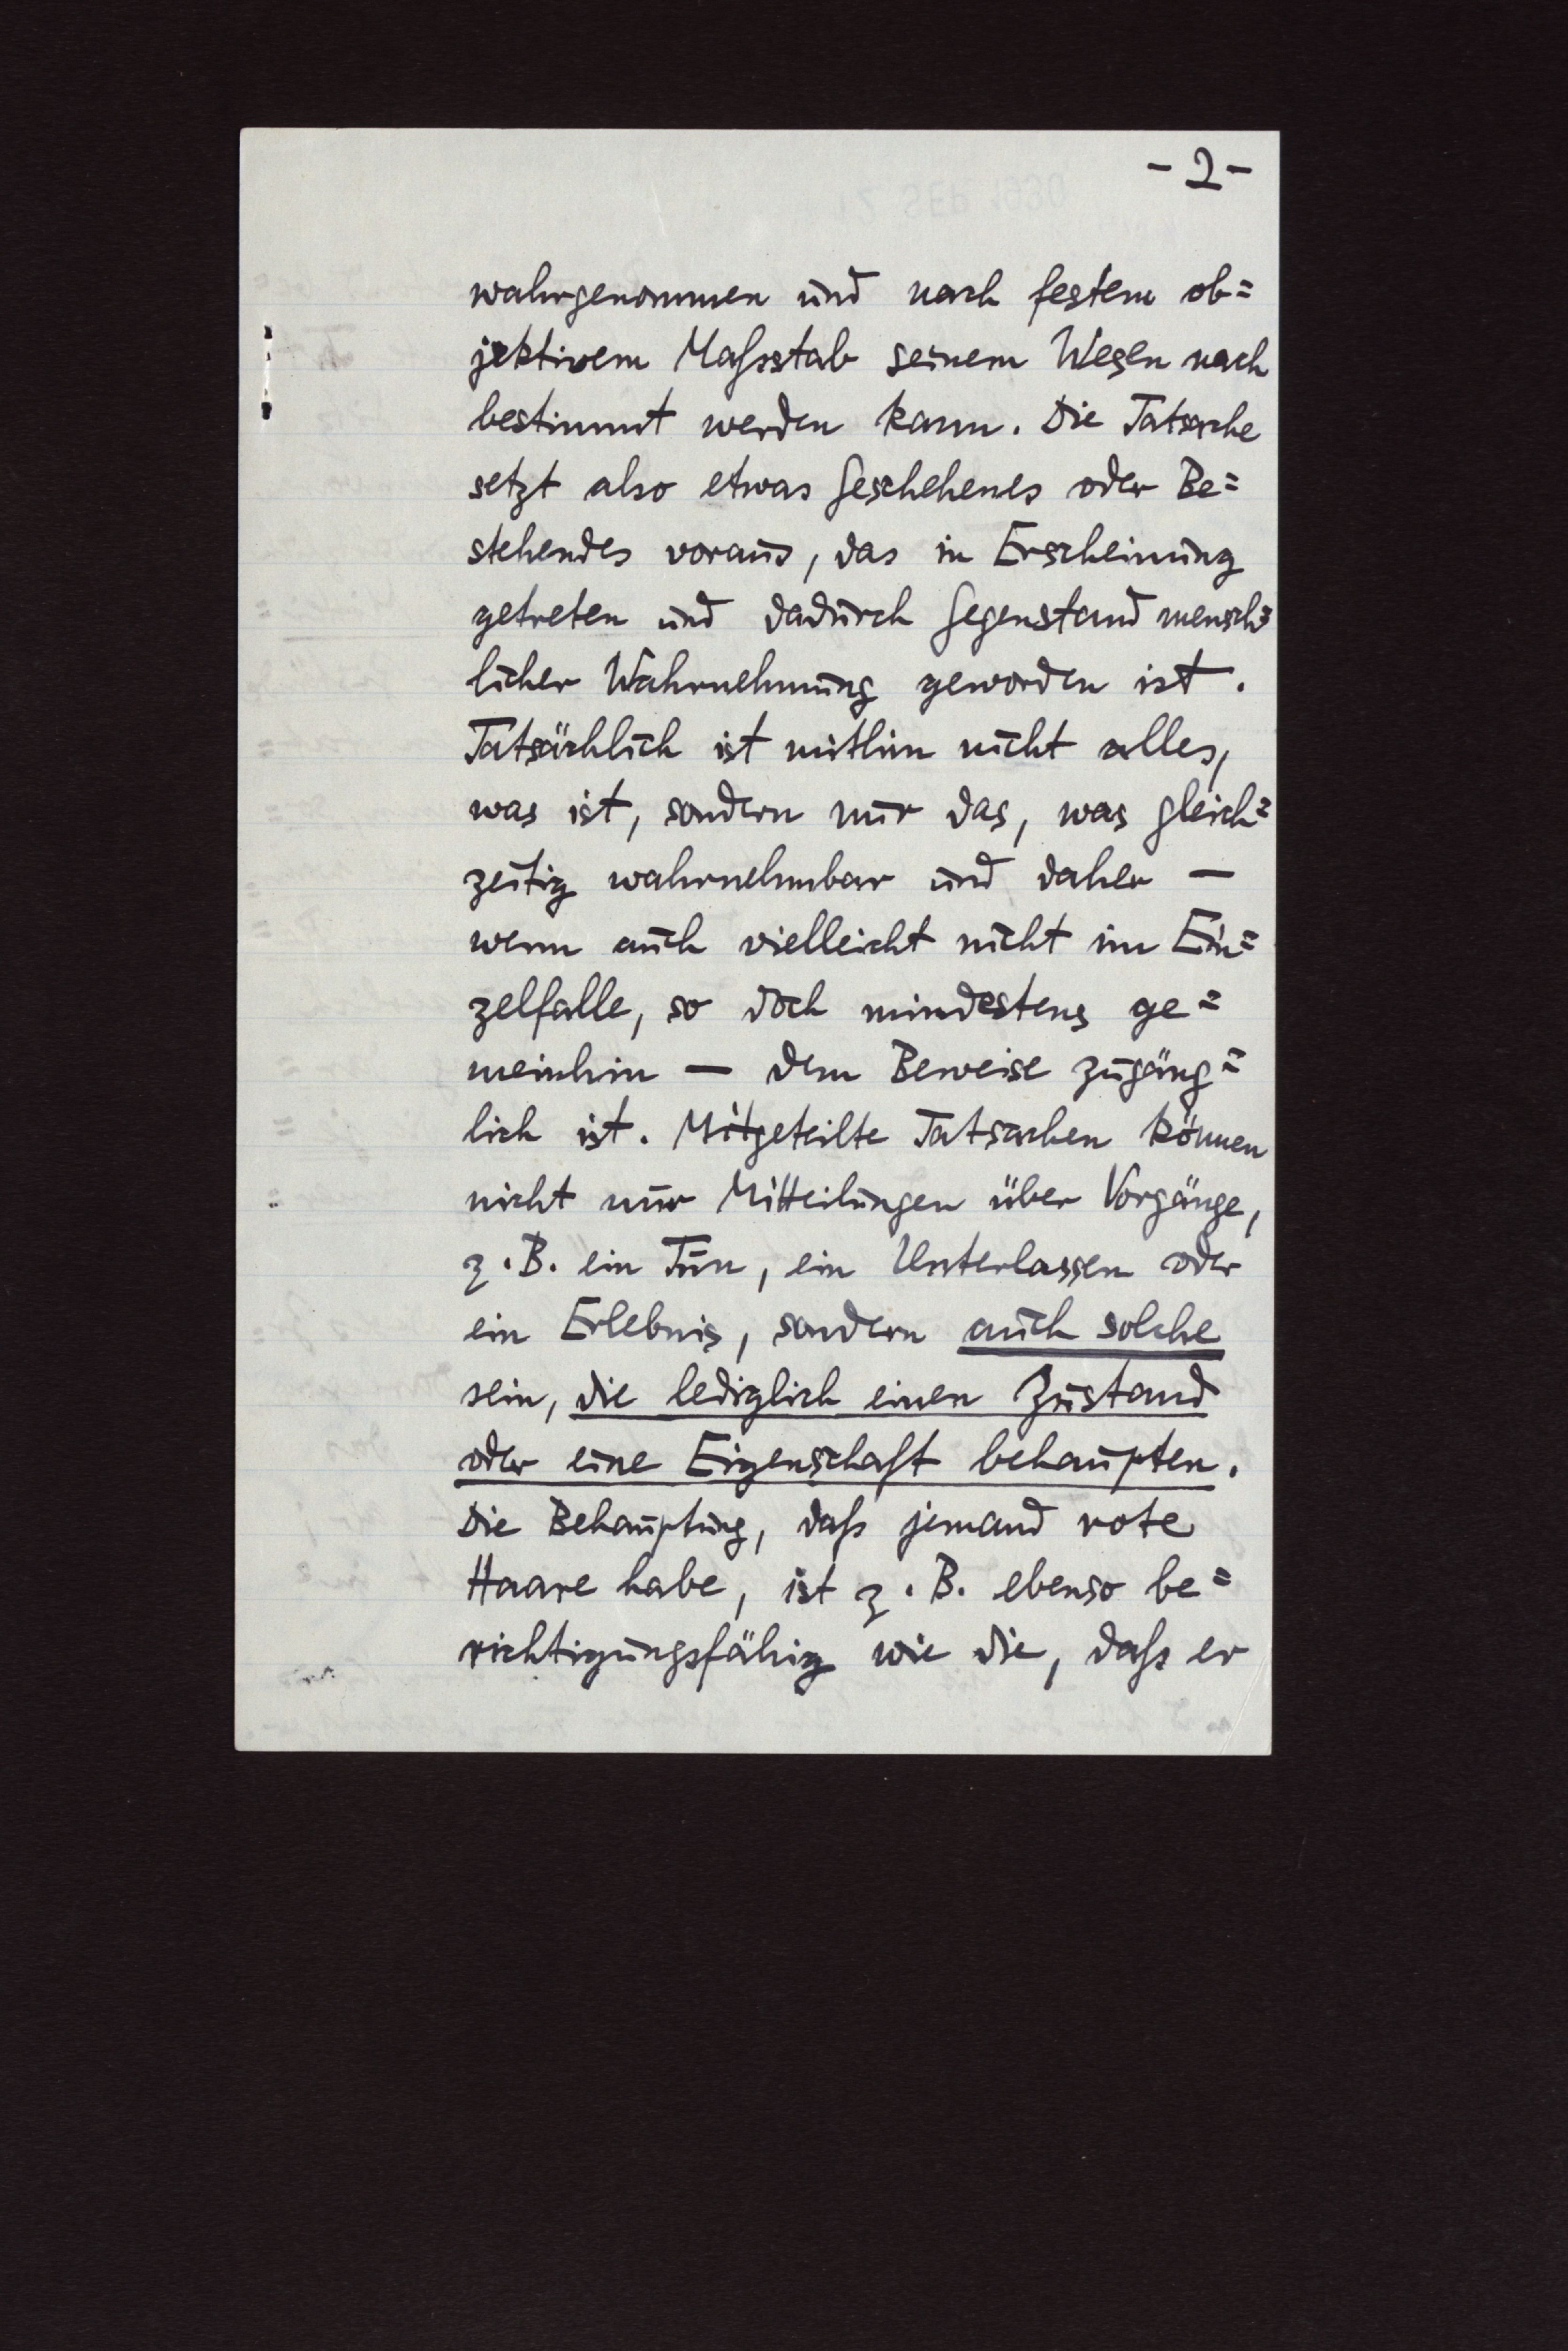 -2-
wahrgenommen und nach festem ob=
jektivem Maßstab seinem Wesen nach
bestimmt werden kann. Die Tatsache
setzt also etwas Geschehenes oder Be=
stehendes voraus, das in Erscheinung
getreten und dadurch Gegenstand mensch=
licher Wahrnehmung geworden ist.
Tatsächlich ist mithin nicht alles,
was ist, sondern nur das, was gleich=
zeitig wahrnehmbar und daher —
wenn auch vielleicht nicht im Ein=
zelfalle, so doch mindestens ge=
meinhin — dem Beweise zugäng=
lich ist. Mitgeteilte Tatsachen können
nicht nur Mitteilungen über Vorgänge,
z.B. ein Tun, ein Unterlassen oder
ein Erlebnis, sondern auch solche
sein, die lediglich einen Zustand
oder eine Eigenschaft behaupten.
Die Behauptung, daß jemand rote
Haare habe, ist z.B. ebenso be=
richtigungsfähig wie die, daß er